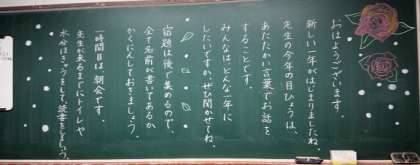 おはようございます。
新しい一年がはじまりましたね。
先生の今年の目ひょうは、
あたたかい言葉でお話を
することです。
みんなは、どんな一年に
したいですか。ぜひ聞かせてね。
宿題は後で集めるので、
全て名前が書いてあるか、
かくにんしておきましょう。
一時間目は、朝会です。
先生が来るまでにトイレや
水分ほきゅうをして、読書をしましょう。